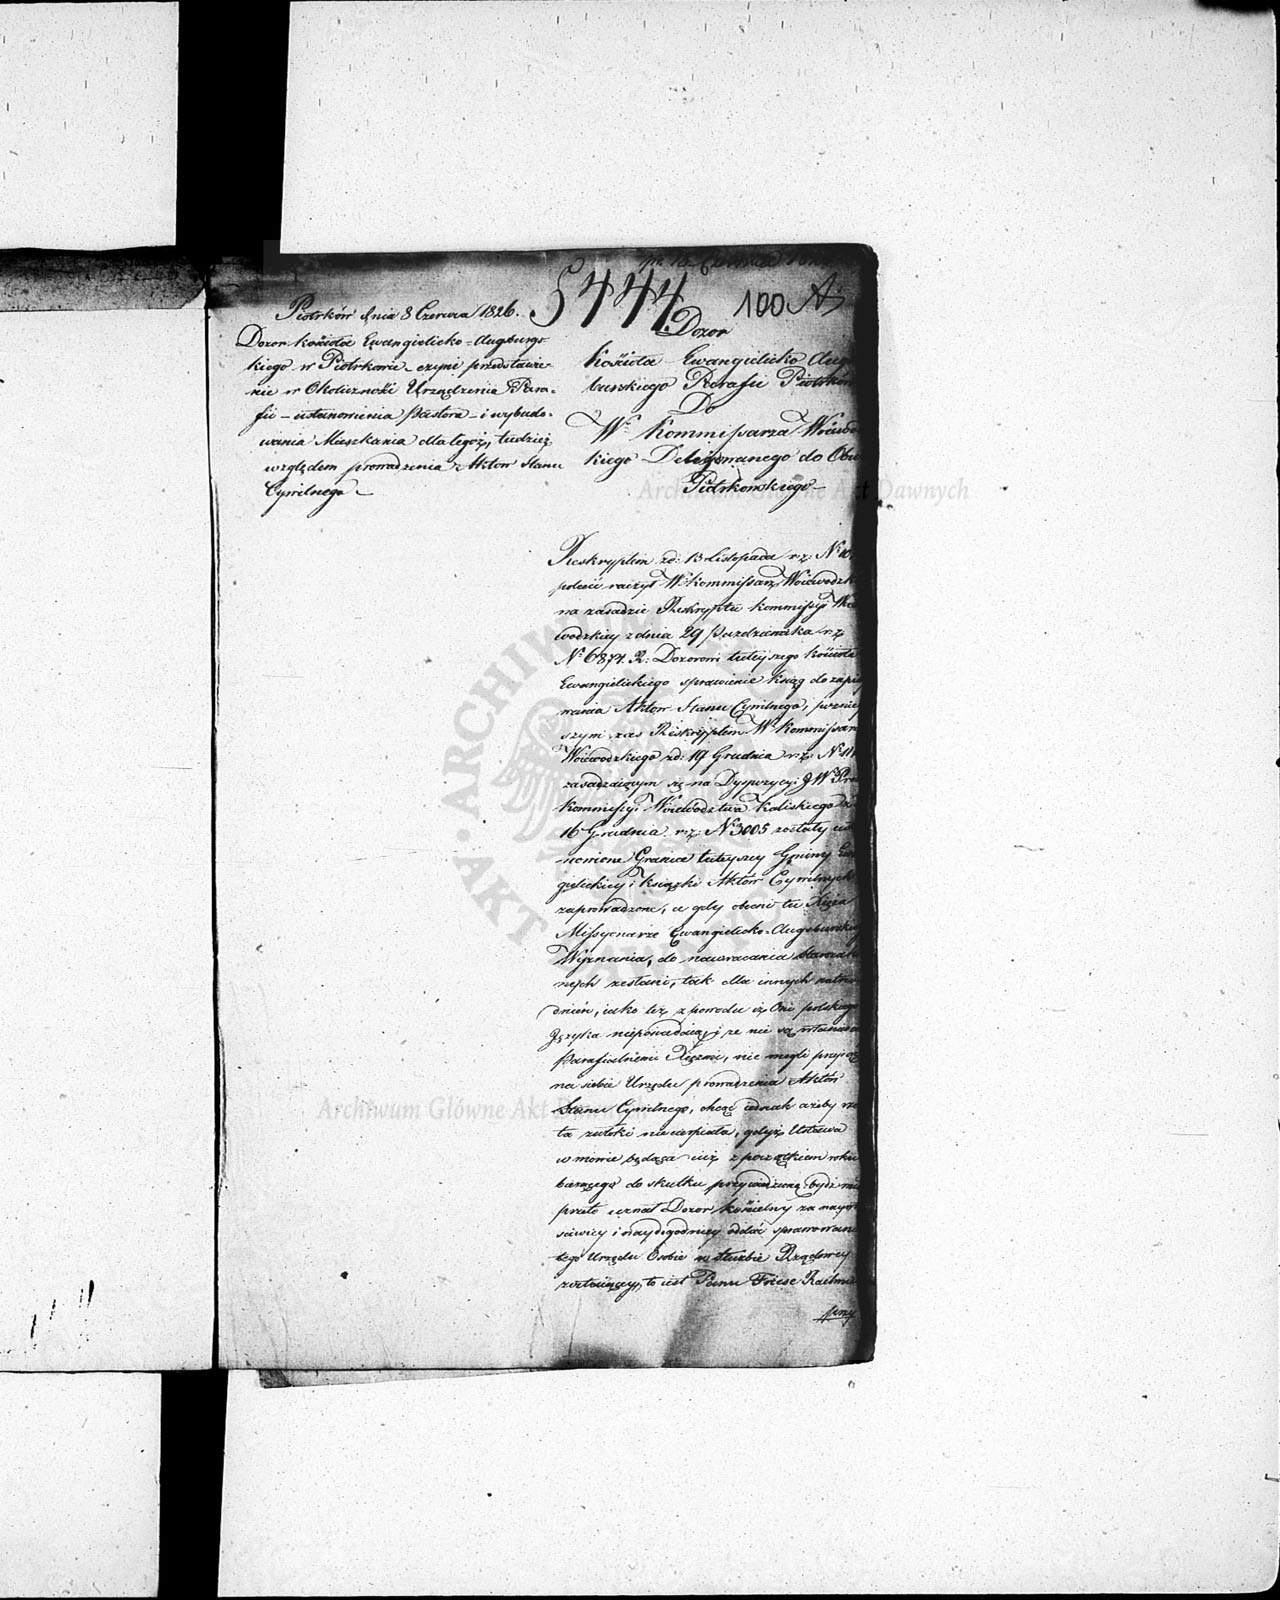 5444
100 A
Piotrków dnia 8 Czerwca 1826.
Dozor kościoła Ewangielicko-Augsburgs-
kiego w Piotrkowie czyni przedstawie-
nie w Okoliczności Urządzenia Para-
fii – ustanowienia Pastora – i wybudo-
wania Mieszkania dla tegoż, tudzież
względem prowadzenia Aktow Stanu
Cywilnego –
Dozor
Kościoła Ewangielicko Aug
burskiego Parafii Piotrków
Do
Wo Kommissarza Woiewódz
kiego Delegowanego do Obw
Piotrkowskiego –
Reskryptem zd: 13 Listopada r.z. No
polecił raczył W. Kommissarz Woiewodzki
na zasadzie Reskryptu Kommissyi Woie
wodzkiey z dnia 29 Pazdziernika r.z.
No 6874. R. Dozorowi tuteyszego kościoła
Ewangielickiego sprawienie ksiąg do zapisy
wania Aktow Stanu Cywilnego, poźniey
szym zas Reskryptem Wo Kommissarza
Woiewodzkiego zd: 19 Grudnia r.z. No
zasadzaiącym się na Dyspozycyi JW Pre
Kommissyi Woiewództwa Kaliskiego
16 Grudnia r.z. No 3005 zostały
nowione Granice tuteyszey Gminy Ewan
gelickiey i Książki Aktów Cywilnych
zaprowadzone, a gdy obecni tu Xięża
Missyonarze Ewangielicko-Augsburskiego
Wyznania, do nawracania Starozako
nych zesłani, tak dla innych zatru
dnień, iako tez z powodu iż Oni polskiego
Języka nieposiadaią, i ze nie są własciwie
Parafialnemi Xiężmi, nie mogli przyiąć
na siebie Urzędu prowadzenia Aktów
Stanu Cywilnego, chcąc iednak ażeby
ta zwłoki niecierpiała, gdyż Ustawa
w mowie będąca iuż z początkiem roku
bieżącego do skutku przywiedzioną bydź
przeto uznał Dozor kościelny za nayw
ściwiey i naydogodniey oddać sprawowanie
tego Urzędu Osobie w służbie Rządowey
zostaiącey, to iest Panu Friese